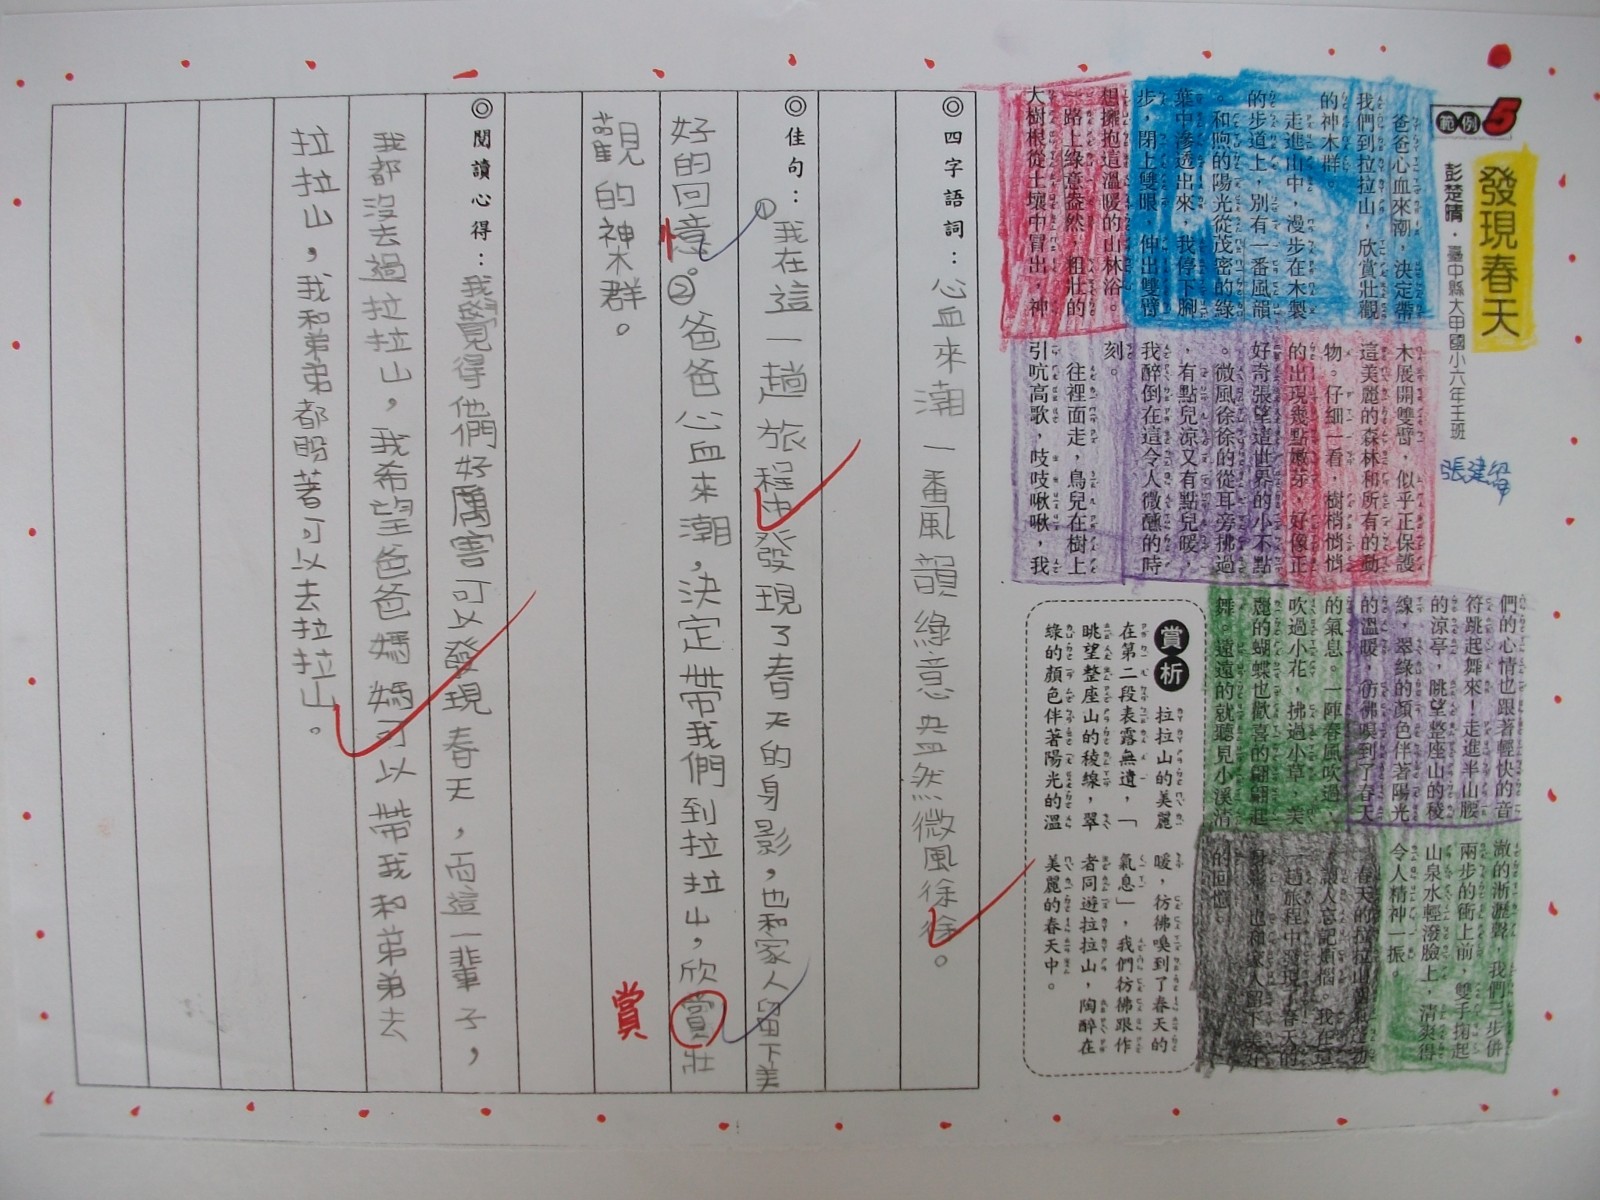 範例5
發現春天
彭楚晴・臺中縣大甲國小六年壬班
張建
爸爸心血來潮，決定帶
我們到拉拉山，欣賞壯觀
的神木群。
走進山中，漫步在木製
的步道上，別有一番風韻
。和煦的陽光從茂密的綠
葉中滲透出來，我停下腳
步，閉上雙眼，伸出雙臂
想擁抱這溫暖的山林浴。
一路上綠意盎然，粗壯的
大樹根從土壤中冒出，神
木展開雙臂，似乎正保護
這美麗的森林和所有的動
物。仔細一看，樹梢悄悄
的出現幾點嫩芽，好像正
好奇張望這世界的小不點
。微風徐徐的從耳旁拂過
，有點兒涼又有點兒暖，
我醉倒在這令人微醺的時
刻。
往裡面走，鳥兒在樹上
引吭高歌，吱吱啾啾，我
們的心情也跟著輕快的音
符跳起舞來！走進半山腰
的涼亭，眺望整座山的稜
線，翠綠的顏色伴著陽光
的溫暖，彷彿嗅到了春天
的氣息。一陣春風吹過，
吹過小花，拂過小草，美
麗的蝴蝶也歡喜的翩翩起
舞。遠遠的就聽見小溪清
澈的淅瀝聲，我們三步併
兩步的衝上前，雙手掬起
山泉水輕潑臉上，清爽得
令人精神一振。
春天的拉拉山
讓人忘記煩惱。我在這
一趟旅程中發現了春天的
身影，也和家人留下美好
的回憶。
賞析
拉拉山的美麗
在第二段表露無遺，「
眺望整座山的稜線，翠
綠的顏色伴著陽光的溫
暖，彷彿嗅到了春天的
氣息」，我們彷彿跟作
者同遊拉拉山，陶醉在
美麗的春天中。
◎四字語詞：心血來潮 一番風韻 綠意盎然 微風徐徐。
◎佳句：①我在這一趟旅程中發現了春天的身影，也和家人留下美
好的回憶。②爸爸心血來潮，決定帶我們到拉拉山，欣賞壯
觀的神木群。
賞
◎閱讀心得：我覺得他們好厲害可以發現春天，而這一輩子，
我都沒去過拉拉山，我希望爸爸媽媽可以帶我和弟弟去
拉拉山，我和弟弟都盼著可以去拉拉山。